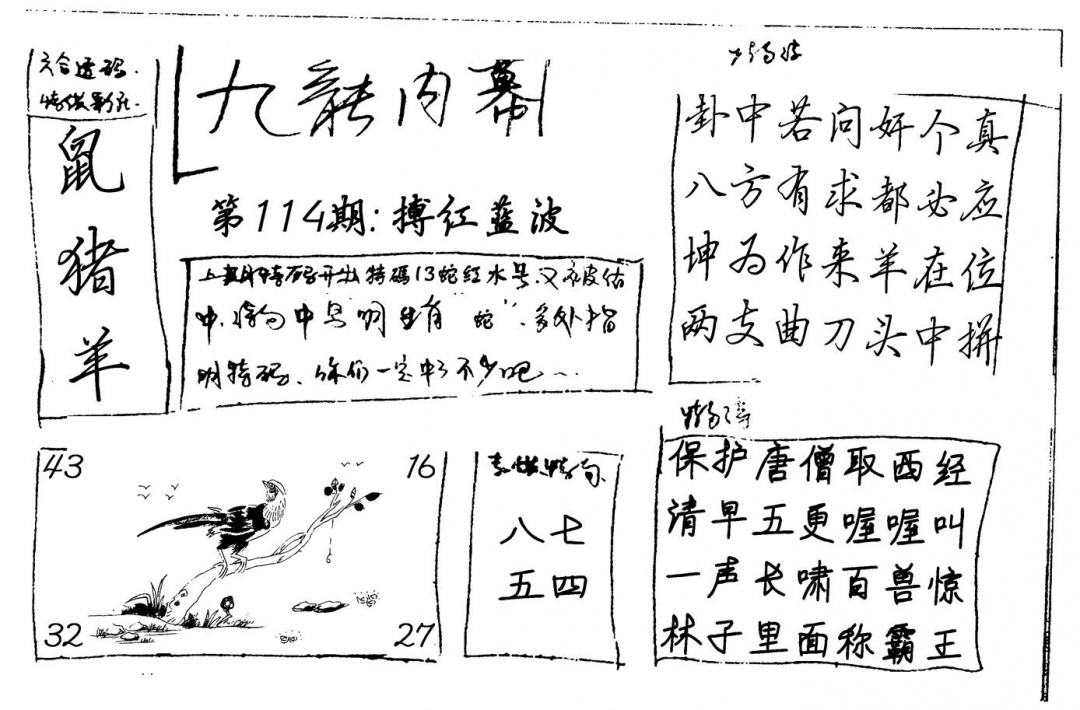 六合透码
鼠
猪
羊
九龍内幕
第114期:搏红蓝波
上期特码开出特碼13蛇红水号又被估
中、中号明生肖“蛇”、多处指
明特码、你们一定中了不少吧…
卦中若问奸个真
八方有求都必应
坤为作来羊在位
两支曲刀头中拼
43
16
32
27
八七
五四
保护唐僧取西经
清早五更喔喔叫
一声长啸百兽惊
林子里面称霸王